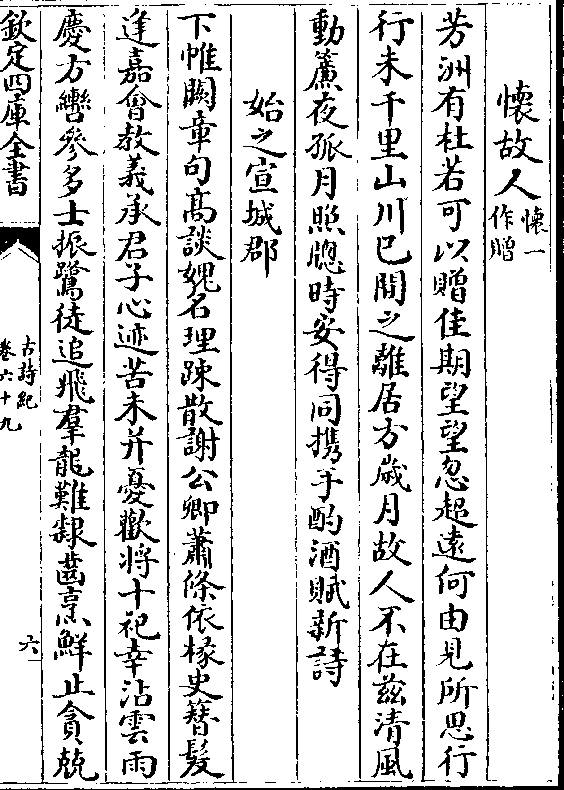 懷故人懷一作贈
芳洲有杜若可以贈佳期望望忽超遠何由見所思行
行未千里山川已間之離居方歲月故人不在兹清風
動簾夜孤月照牕時安得同攜手酌酒賦新詩
始之宣城郡
下帷闕章句髙談媿名理踈散謝公卿蕭條依椽史簪髮
逢嘉㑹教義承君子心迹苦未并憂歡將十祀幸沾雲雨
慶方轡參多士振鷺徒追飛羣龍難𨽻齒烹鮮止貪兢
欽定四庫全書
古詩紀
卷六十九
六